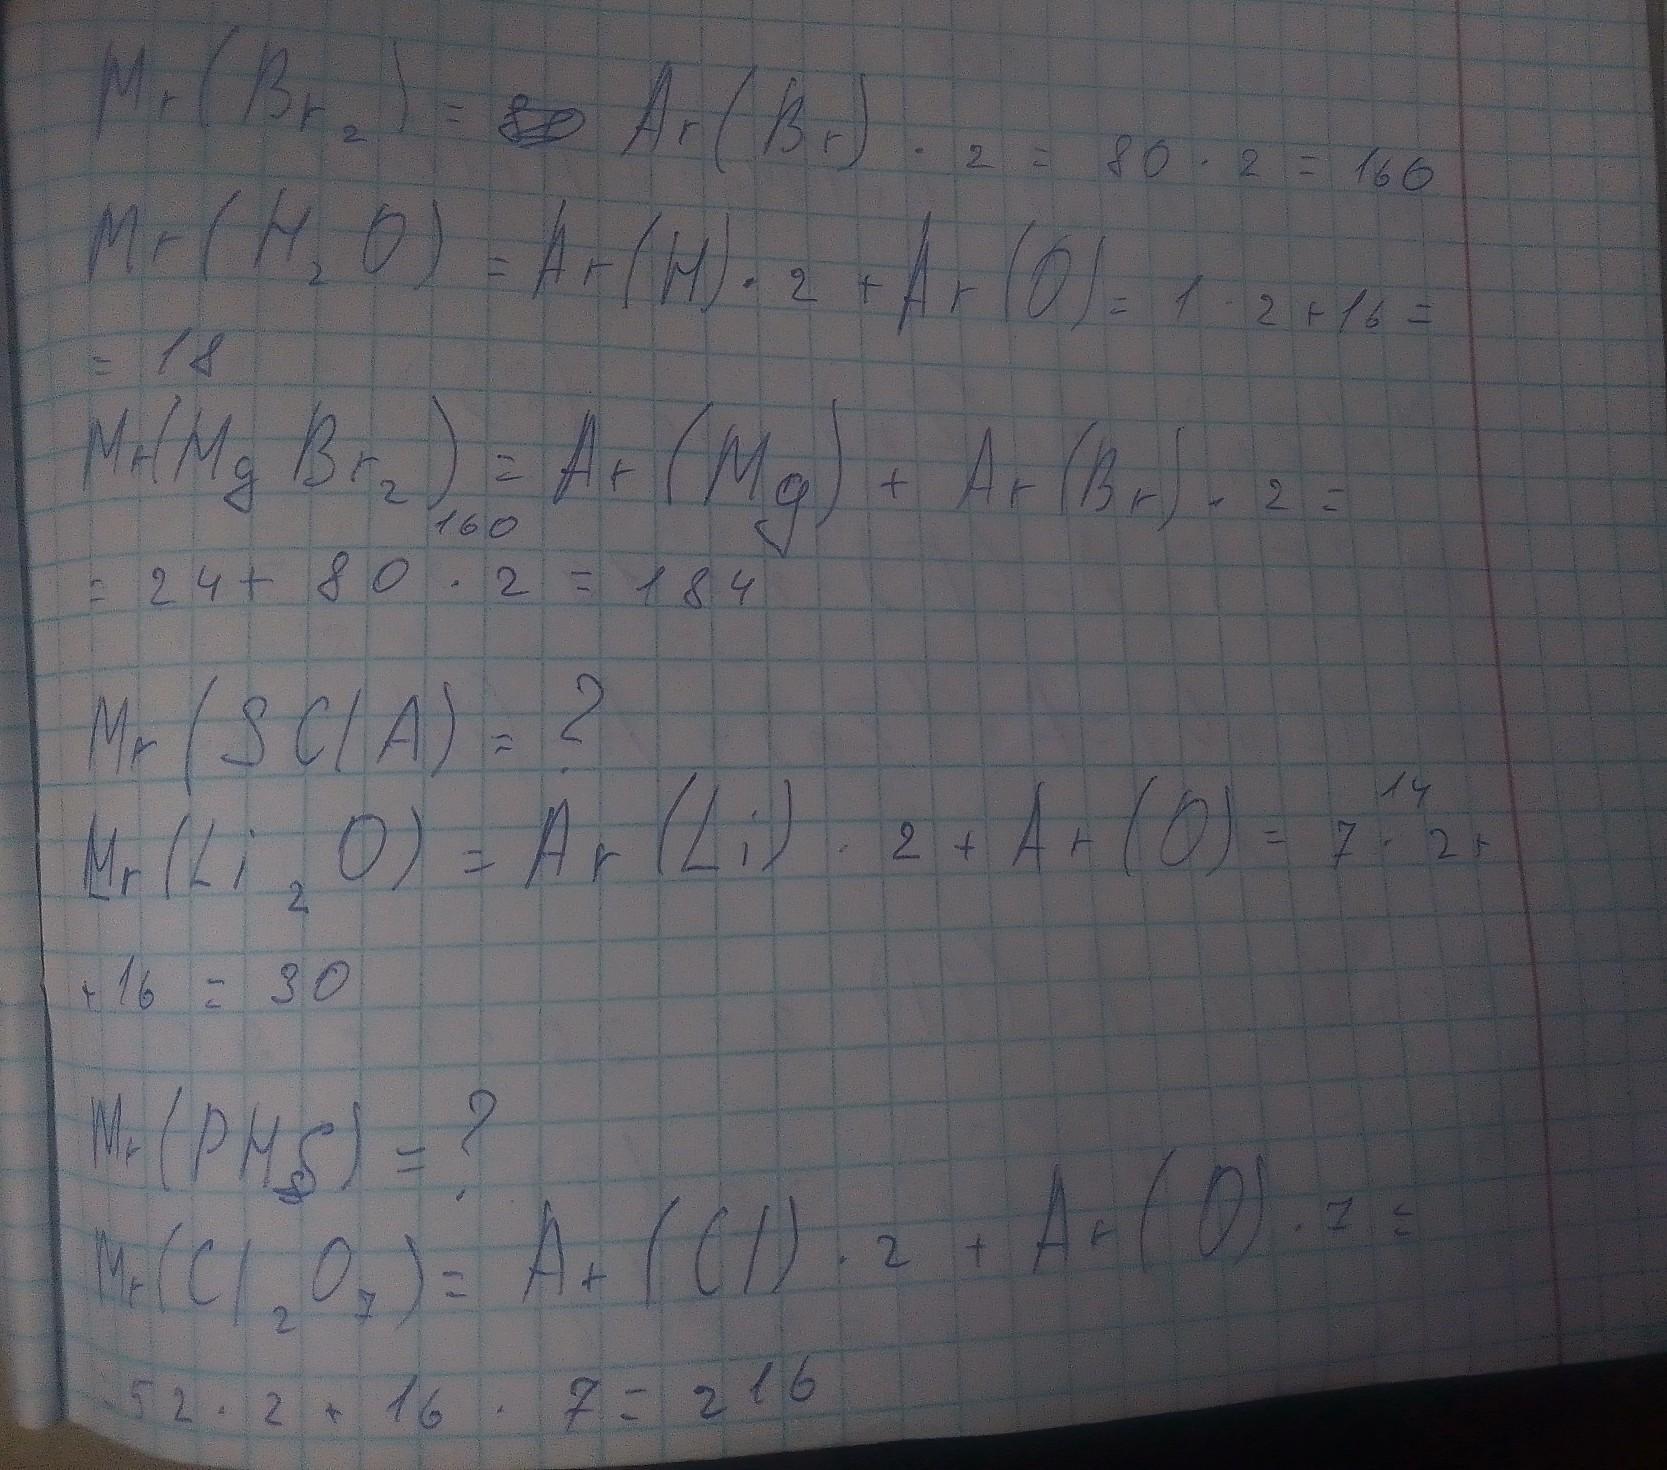 Mr(Br2) = Ar(Br) · 2 = 80 · 2 = 160
Mr(H2O) = Ar(H) · 2 + Ar(O) = 1 · 2 + 16 =
= 18
Mr(MgBr2) = Ar(Mg) + Ar(Br) · 2 =
160
= 24 + 80 · 2 = 184
Mr(SClA) = ?
14
Mr(Li2O) = Ar(Li) · 2 + Ar(O) = 7 · 2 +
+ 16 = 30
Mr(PHS) = ?
Mr(Cl2O7) = Ar(Cl) · 2 + Ar(O) · 7 =
52 · 2 + 16 · 7 = 216